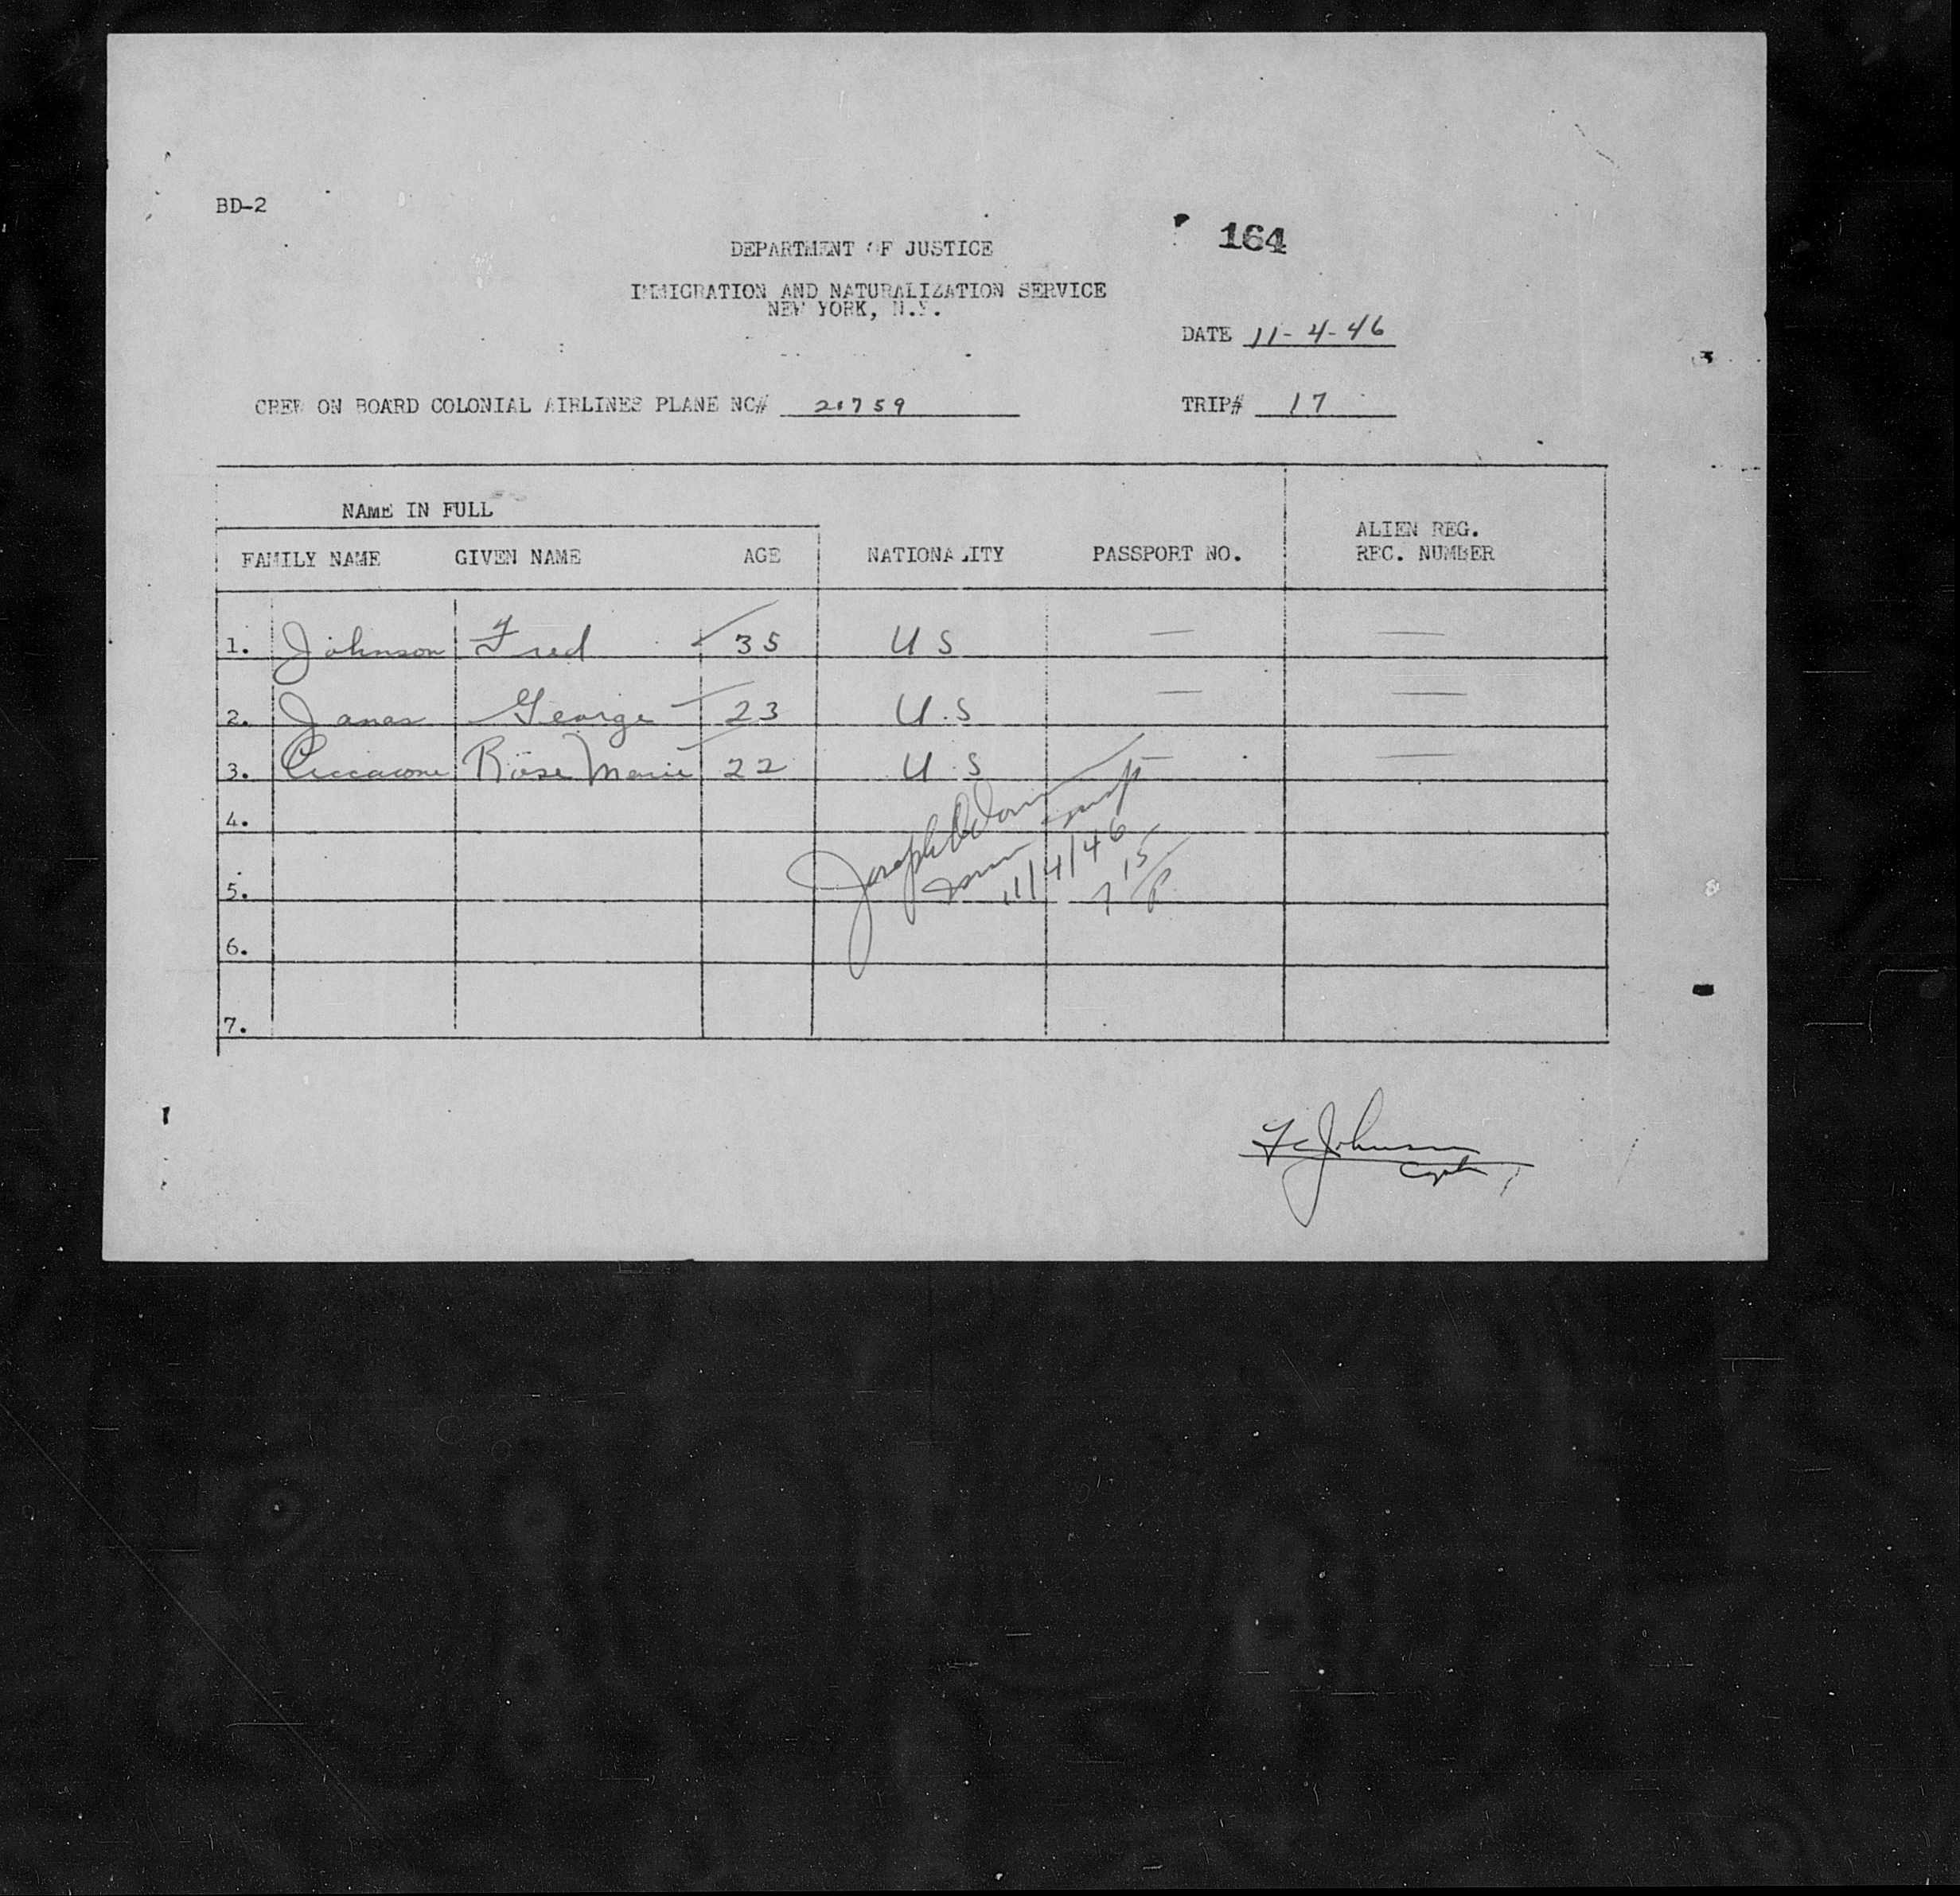 BD-2
164
DEPARTMENT OF JUSTICE
IMMIGRATION AND NATURALIZATION SERVICE
NEW YORK, N.Y.
DATE 11-4-46
CREW ON BOARD COLONIAL AIRLINES PLANE NC# 21759
TRIP# 17
NAME IN FULL
FAMILY NAME GIVEN NAME AGE NATIONALITY PASSPORT NO. ALIEN REG. REC. NUMBER
1. Johnson Fred 35 U S — —
2. Janas George 23 U.S — —
3. Rose Marie 22 U.S — —
4.
5.
6.
7.
Joseph
11/4/46
7 15/P
F C Johnson
Capt